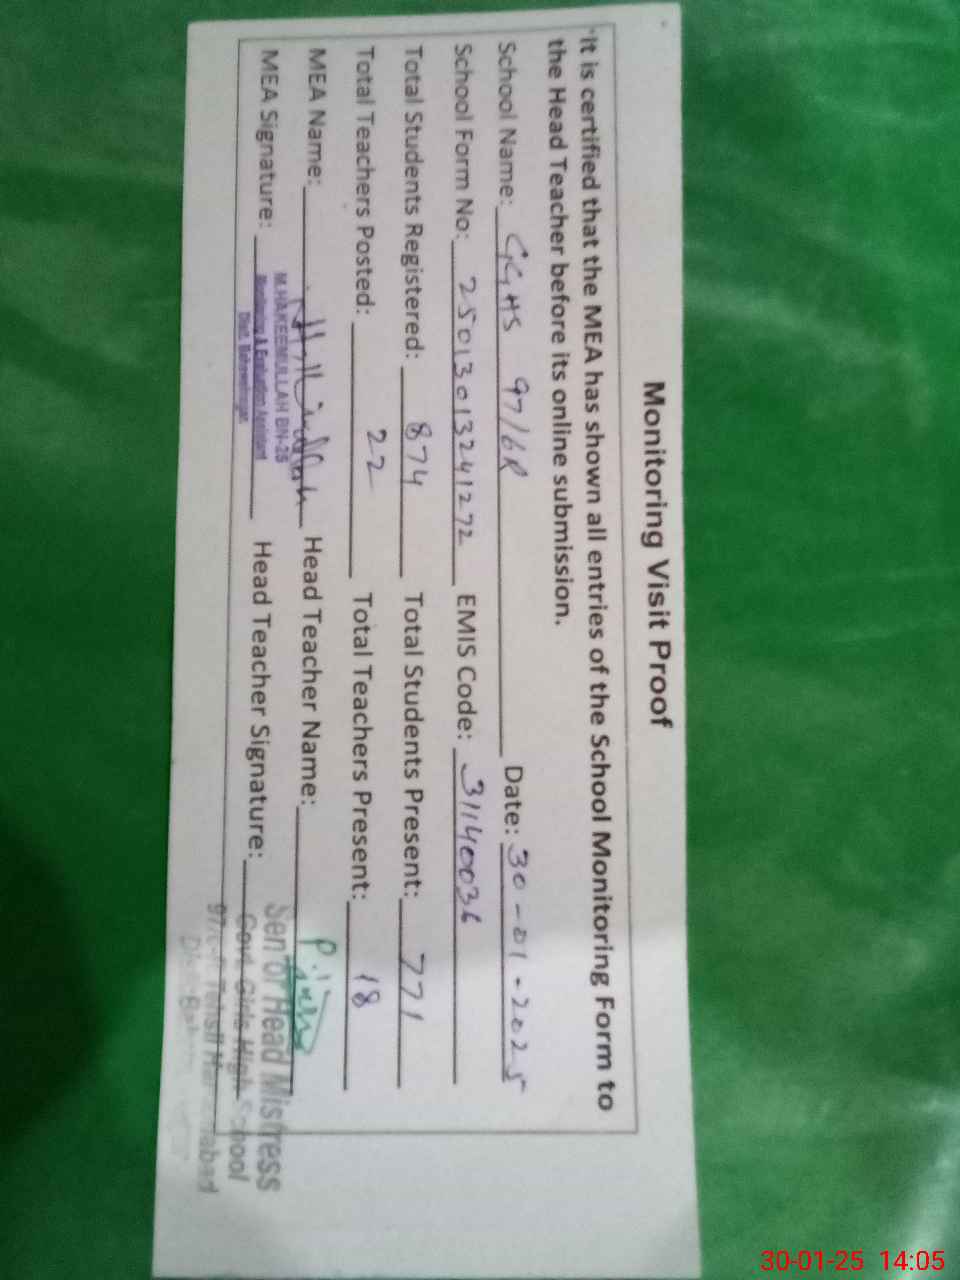 Monitoring Visit Proof
"It is certified that the MEA has shown all entries of the School Monitoring Form to
the Head Teacher before its online submission.
School Name: GGHS 97/6R Date: 30-01-2025
School Form No: 25013013241272 EMIS Code: 31140036
Total Students Registered: 874 Total Students Present: 771
Total Teachers Posted: 22 Total Teachers Present: 18
MEA Name: Head Teacher Name:
MEA Signature: Head Teacher Signature:
M.HAKEEMULLAH BN-25
Monitoring & Evaluation Assistant
Distt. Bahawalnagar
Senior Head Mistress
Govt. Girls High School
97/6-R Tehsil
30-01-25 14:05